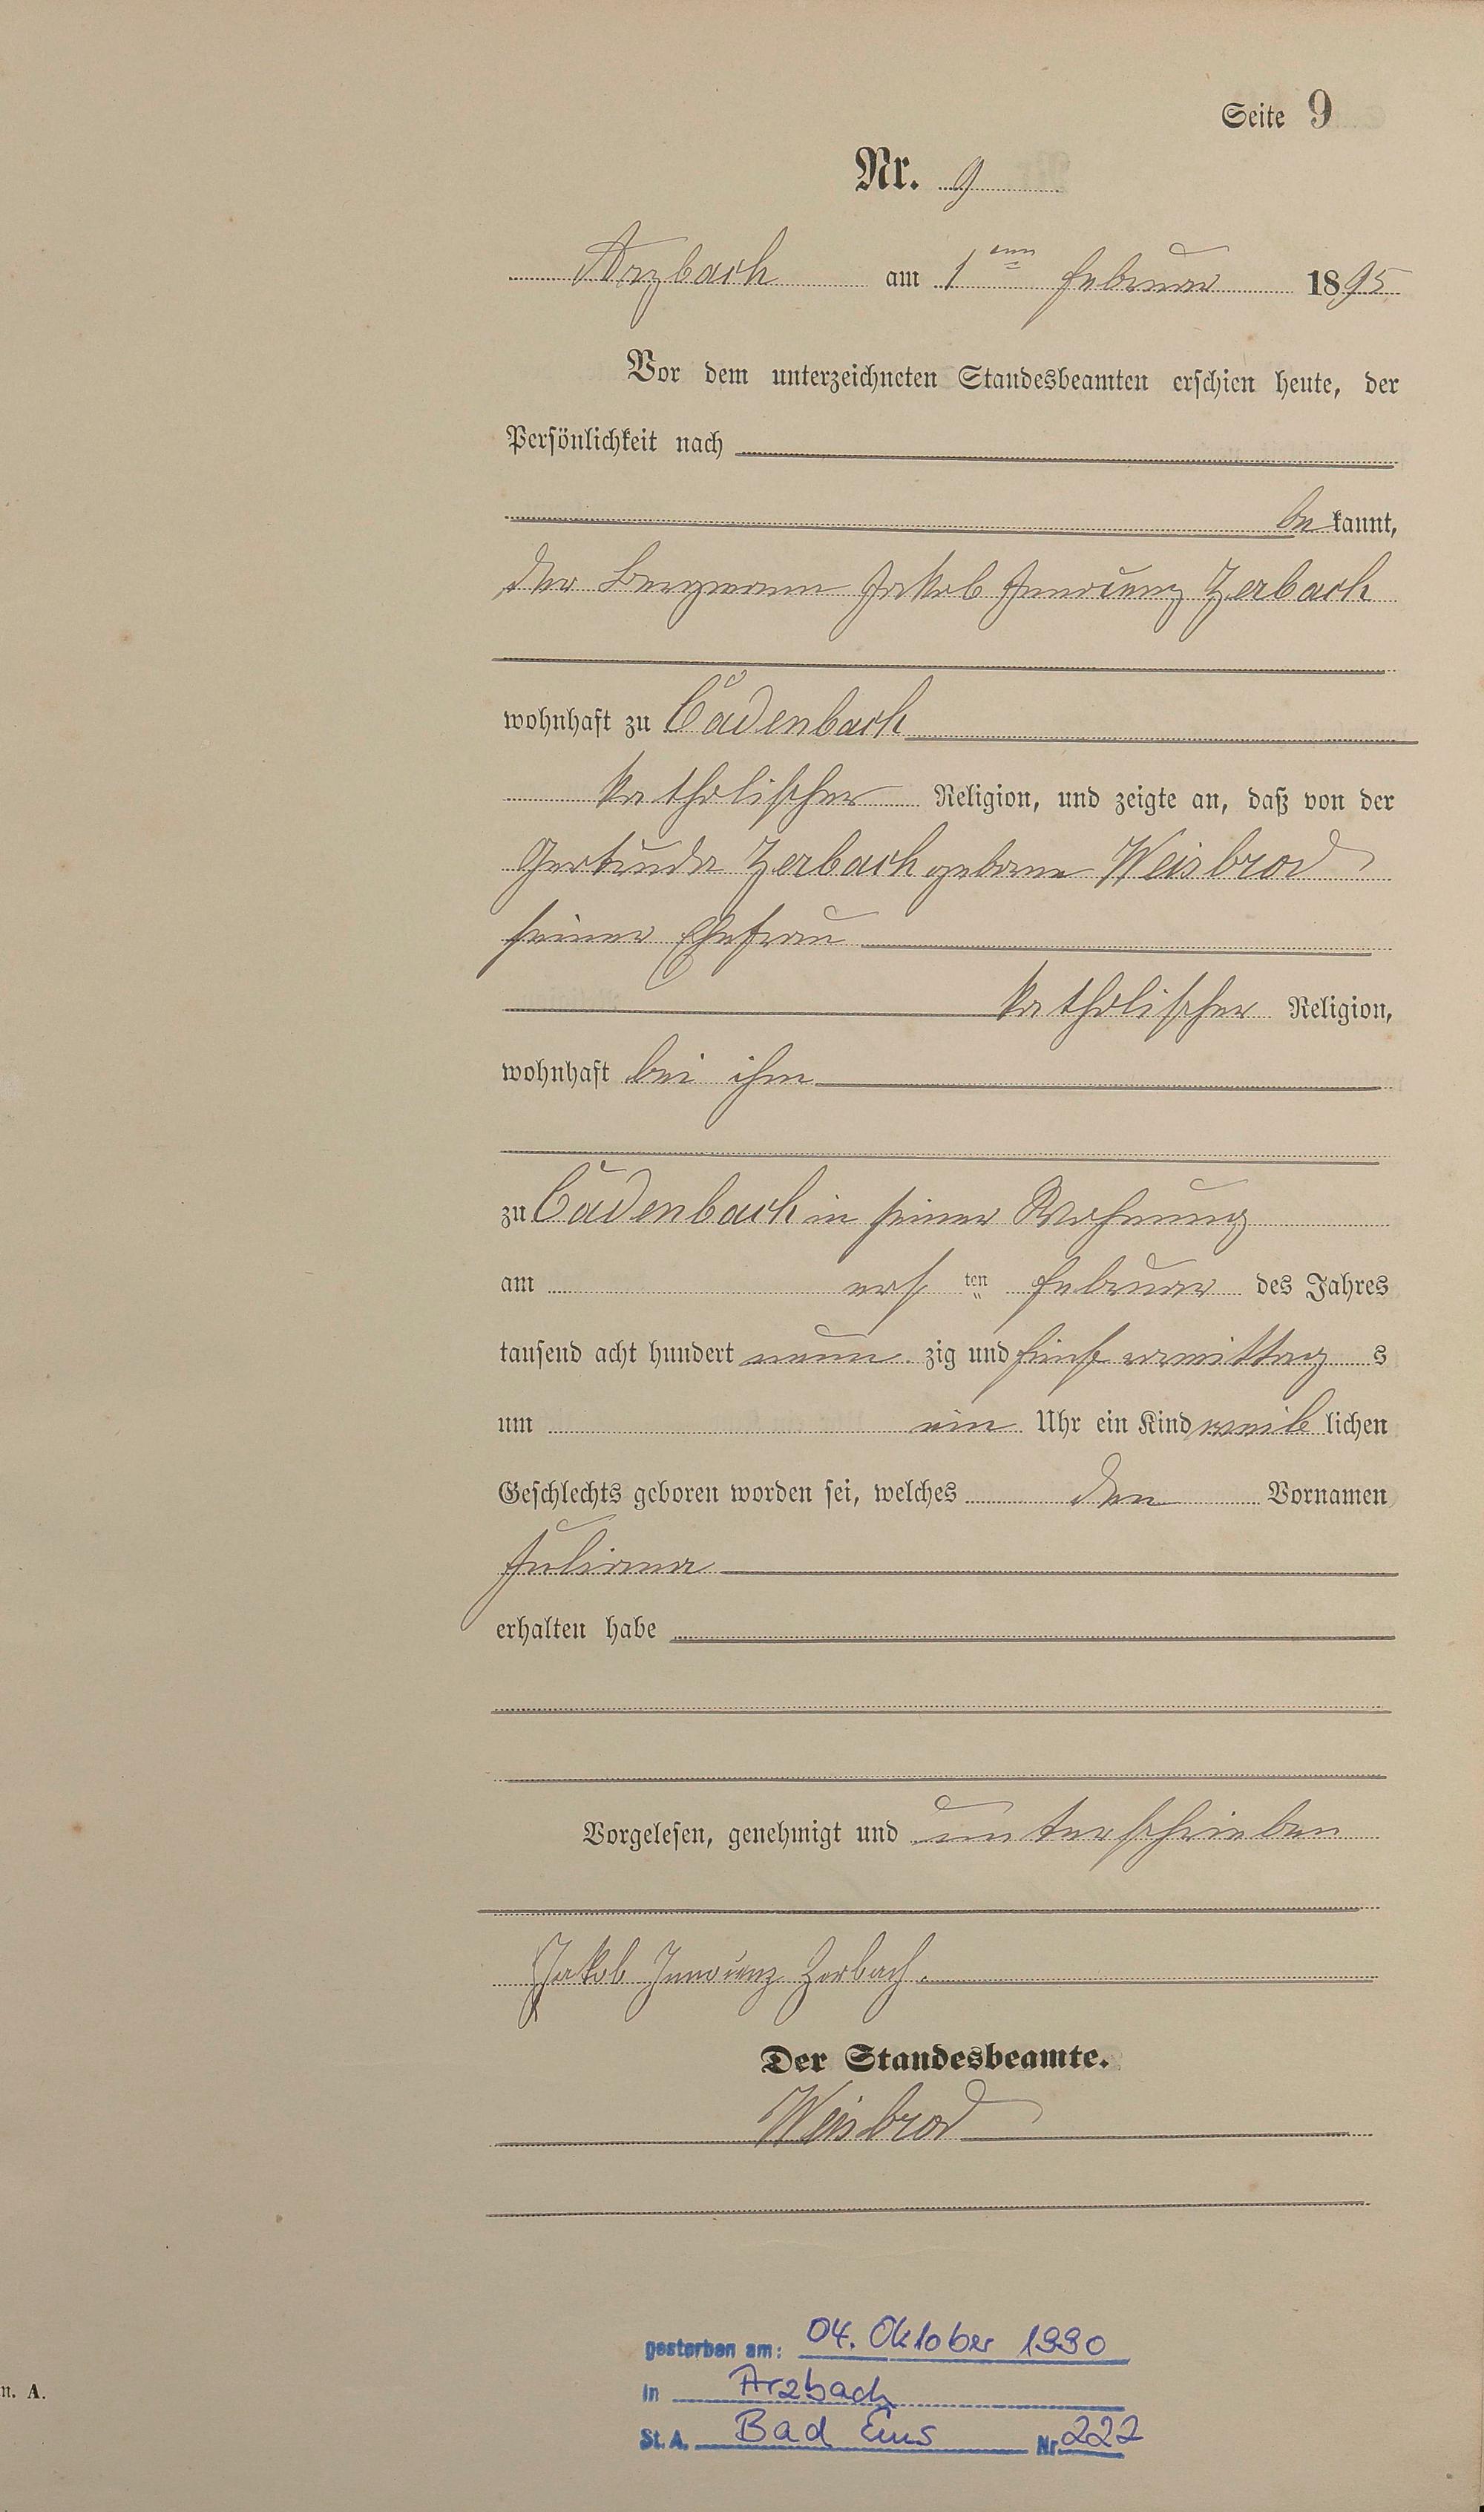 Seite 9
Nr. 9
Arzbach am 1ten Februar 1895
Vor dem unterzeichneten Standesbeamten erschien heute, der
Persönlichkeit nach
be kannt,
der Bergmann Jakob Innocenz Zerbach
wohnhaft zu Cadenbach
katholischer Religion, und zeigte an, daß von der
Gertruda Zerbach geborne Weisbrod
seiner Ehefrau
katholischer Religion,
wohnhaft bei ihm
zu Cadenbach in seiner Wohnung
am ers ten Februar des Jahres
tausend acht hundert neun zig und fünf vormittag s
um ein Uhr ein Kind weib lichen
Geschlechts geboren worden sei, welches den Vornamen
Juliana
erhalten habe
Vorgelesen, genehmigt und unterschrieben
Jakob Zerbach.
Der Standesbeamte.
Weisbrod
gestorben am: 04. Oktober 1990
in Arzbach
St. A. Bad Ems Nr 222
n. A.